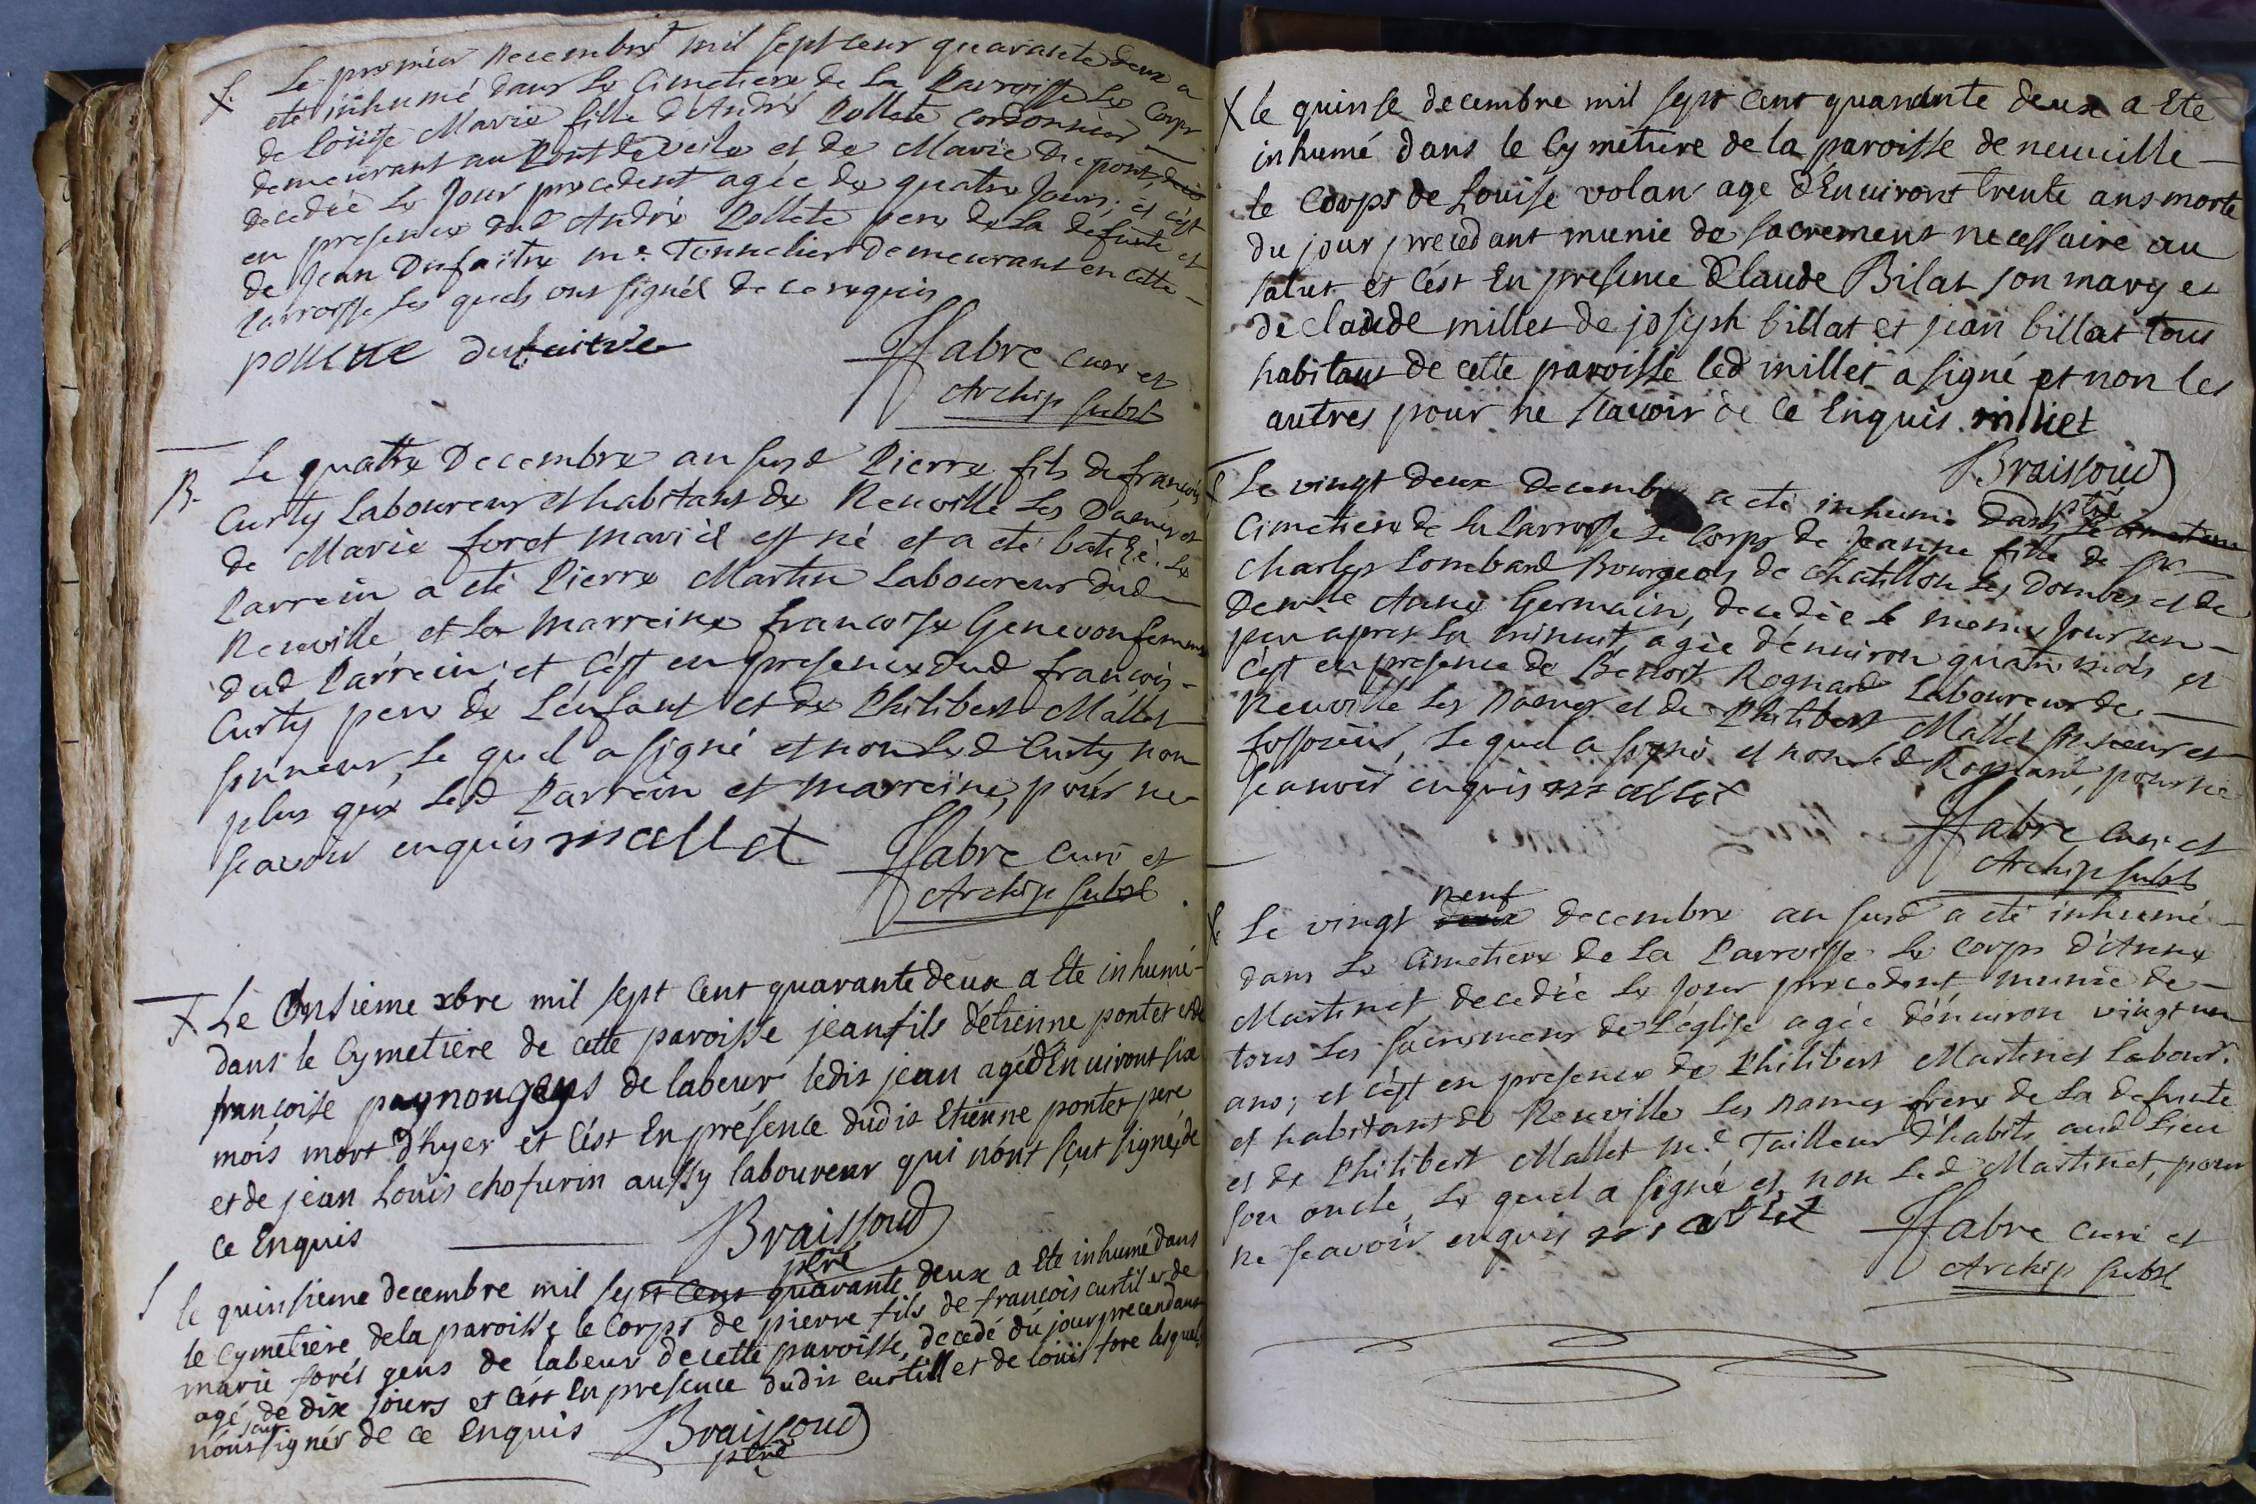 Le premier Decembre mil sept cent quarante deux a
eté inhumé dans Le Cimetiere de La Parroisse Le Corps
de Loüise Marie fille d'André Pollete Cordonnier
demeurant au Pont de veile et de Marie Dupont,
decedée Le Jour precedent agée de quatre Jours; et c'est
en presence dud André Pollete pere de La defunte et
de Jean Dufaitre me. Tonnelier demeurant en cette
Parroisse Les quels ont signés de ce requis
pollette dufaitre
Fabre curé et
Archip subst
B.
Le quattre Decembre an susd Pierre fils de françois
Curty Laboureur et habitant de Neuville Les Dames et
de Marie foret mariés est né et a eté batisé. Le
Parrein a eté Pierre Martin Laboureur dud
Neuville et La Marreine francoise Genevon femme
dud Parrein; et c'est en presence dud françois
Curty pere de L'enfant et de Philibert Mallet
sonneur, Le quel a signé et non Led Curty non
plus que Lesd Parrein et marreine, pour ne
scavoir enquis mallet
Fabre curé et
Archip subst
Le Onsieme xbre mil sept Cent quarante deux a Ete inhumé
dans le Cymetiere de cette paroisse jean fils d'étienne pontet et de
françoise paynon gens de labeur ledit jean agé d'Environt six
mois mort d'hyer et C'est En présence dudit Etienne pontet pere
et de jean Louis chofurin aussy laboureur qui n'ont sçut signé de
ce Enquis
Braissoud
ptre
le quinsieme decembre mil sept Cent quarante deux a Ete inhumé dans
le Cymetiere de la paroisse le Corps de pierre fils de françois curtil et de
marie forét gens de labeur de cette paroisse, decedé du jour precendant
agé de dix jours et C'est En presence dudit curtill et de loüis fore lesquels
n'ont scut signér de ce Enquis
Braissoud
ptre
le quinse decembre mil sept Cent quarante deux a Ete
inhumé dans le Cymetiere de la paroisse de neuville
le Corps de Louise volan age d'Environt trente ans morte
du jour precedant munie de sacrement necessaire au
salut et C'est En presence d'Claude Bilat son mary et
de claude millet de joseph billat et jean billat tous
habitans de cette paroisse led millet a signé et non les
autres pour ne scavoir de ce Enquis millet
Braissoud
ptre
Le vingt deux decembre a eté inhumé dans le cimetiere
Cimetiere de La Parroisse Le Corps de Jeanne fille de Sr
Charles Lombard Bourgeois de Chatillon Les Dombes et de
Demlle Anne Germain, decedée le meme Jour un
peu apres La minuit, agée d'environ quatre mois et
C'est en presence de Benoit Rognard Laboureur de
Neuville Les Dames et de Philibert Mallet sonneur et
fossoieur, Le quel a signé et non Led Rognard, pour ne
scavoir enquis mallet
Fabre curé et
Archip subst
neuf
Le vingt deux decembre an susd a eté inhumé
dans Le Cimetiere de La Parroisse Le Corps d'Anne
Martinet, decedée Le Jour precedent munie de
tous Les sacremens de L'eglise agée d'environ vingt un
ans; et c'est en presence de Philibert Martinet Labour.
et habitant de Neuville Les Dames frere de La defunte
et de Philibert Mallet me. Tailleur d'habits aud Lieu
son oncle, Le quel a signé et non Led Martinet, pour
ne scavoir enquis mallet
Fabre curé et
Archip subst